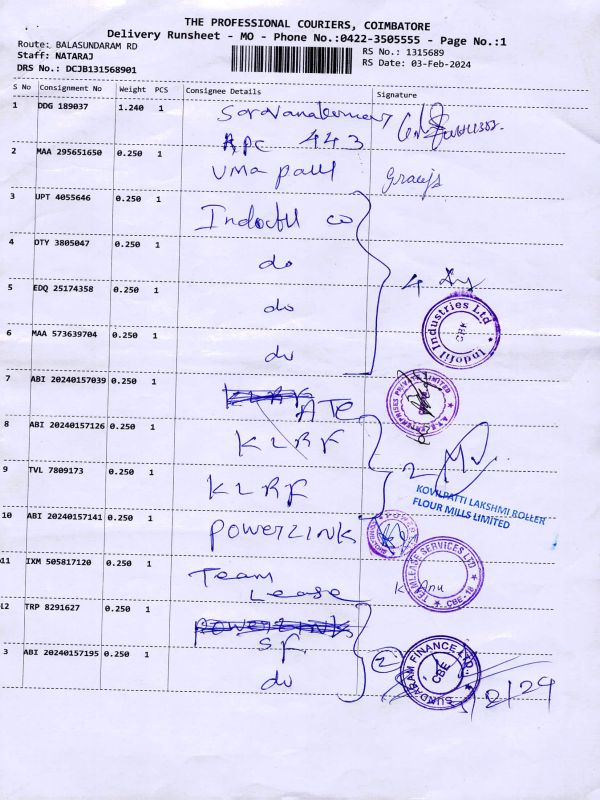 THE PROFESSIONAL COURIERS, COIMBATORE
Delivery Runsheet - MO - Phone No.:0422-3505555 - Page No.:1
Route: BALASUNDARAM RD
RS No.: 1315689
Staff: NATARAJ
RS Date: 03-Feb-2024
DRS No.: DCJB131568901
S No Consignment No Weight PCS Consignee Details Signature
1 DDG 189037 1.240 1
APC 443
2 MAA 295651650 0.250 1 Uma paul
3 UPT 4055646 0.250 1 Indofil co
4 DTY 3805047 0.250 1 do
5 EDQ 25174358 0.250 1 do
4
Indofil Industries Ltd
CBE
6 MAA 573639704 0.250 1 do
7 ABI 20240157039 0.250 1 ATE
8 ABI 20240157126 0.250 1 KLRF
2
9 TVL 7809173 0.250 1 KLRF
KOVILPATTI LAKSHMI ROLLER
FLOUR MILLS LIMITED
10 ABI 20240157141 0.250 1 POWERLINK
11 IXM 505817120 0.250 1 Team
Lease
TEAMLEASE SERVICES LTD
K Anu
12 TRP 8291627 0.250 1 S.F.
3 ABI 20240157195 0.250 1 do
2
SUNDARAM FINANCE LTD.
CBE
/2/24